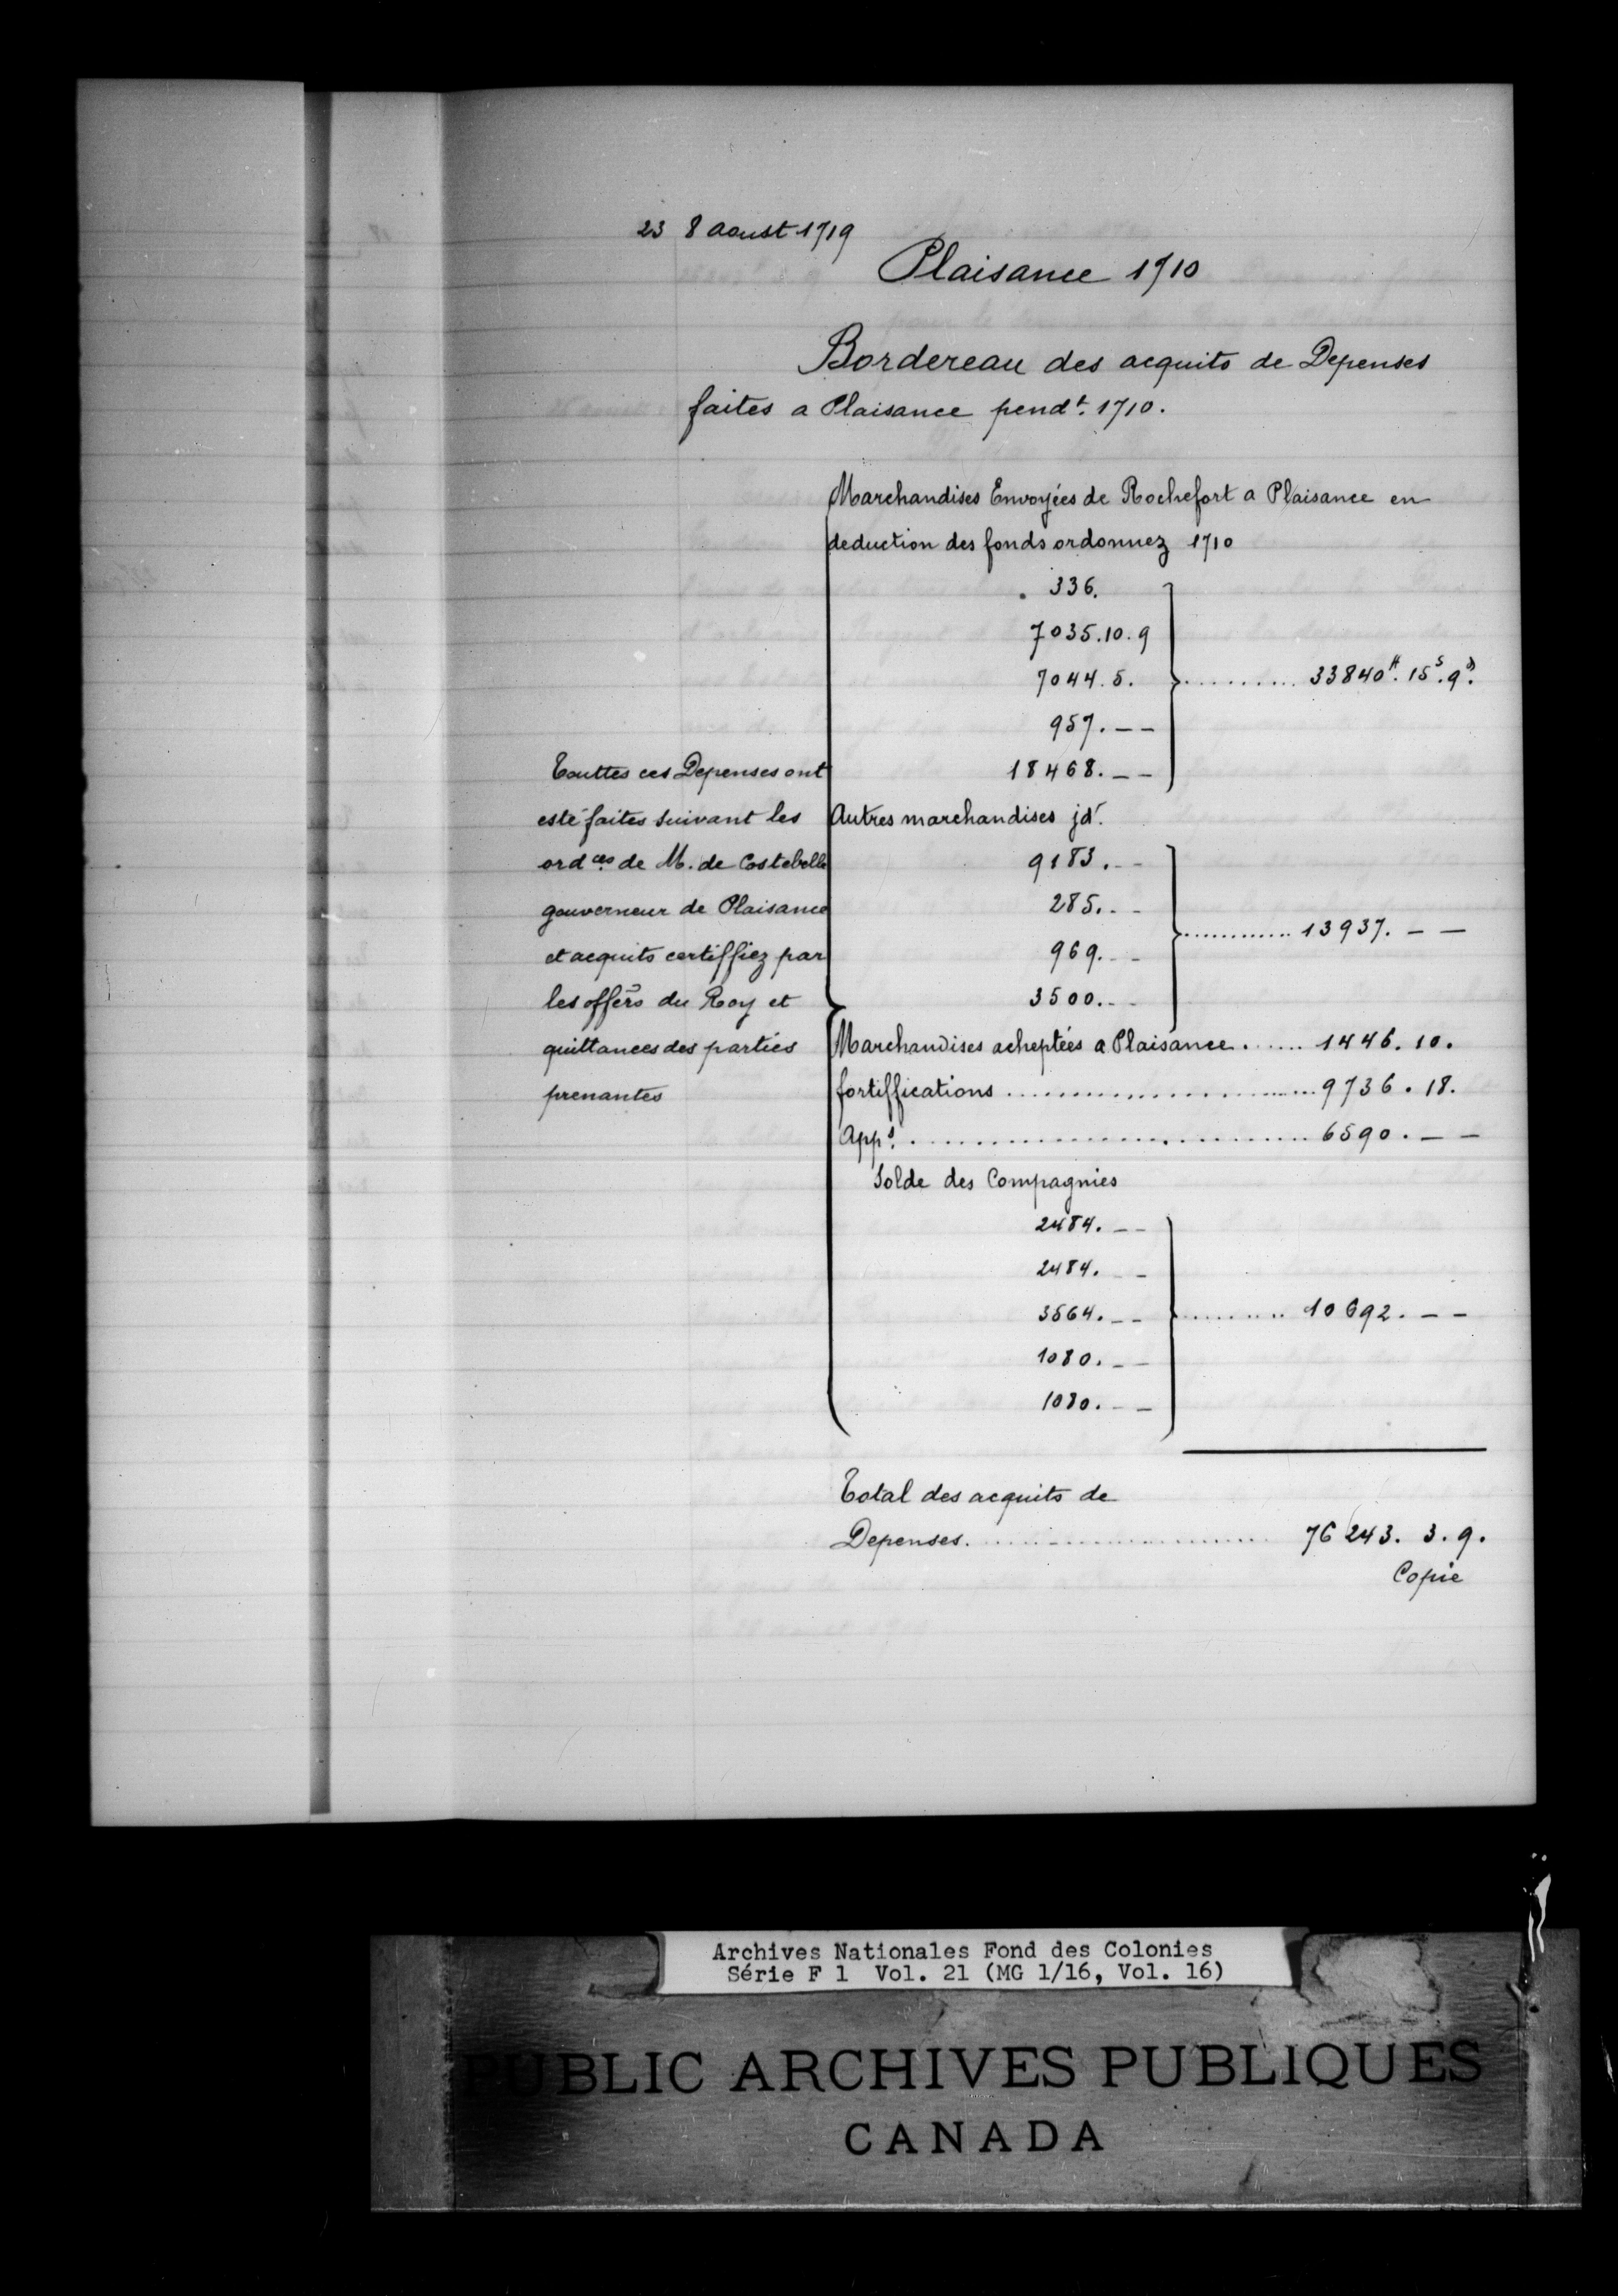 23 8 aoust 1719
Plaisance 1710
Bordereau des acquits de Depenses
faites a Plaisance pendt. 1710.
Marchandises Envoyées de Rochefort a Plaisance en
deduction des fonds ordonnez 1710
336.
7035.10.9
7044.5. .......... 33840₶. 15s. 9d.
957. — —
18468. — —
Autres marchandises jd.
9183. — —
285. — —
............ 13937. — —
969. — —
3500. — —
Marchandises acheptées a Plaisance ...... 1446. 10.
fortiffications ........................ 9736. 18.
Apps. ........................ 6590. — —
Solde des Compagnies
2484. — —
2484. — —
3564. — — .......... 10692. — —
1080. — —
1080. — —
Touttes ces Depenses ont
esté faites suivant les
ordces. de M. de Costebelle
gouverneur de Plaisance
et acquits certiffiez par
les offers du Roy et
quittances des parties
prenantes
Total des acquits de
Depenses ........................ 76243. 3. 9.
Copie
Archives Nationales Fond des Colonies
Série F 1 Vol. 21 (MG 1/16, Vol. 16)
PUBLIC ARCHIVES PUBLIQUES
CANADA